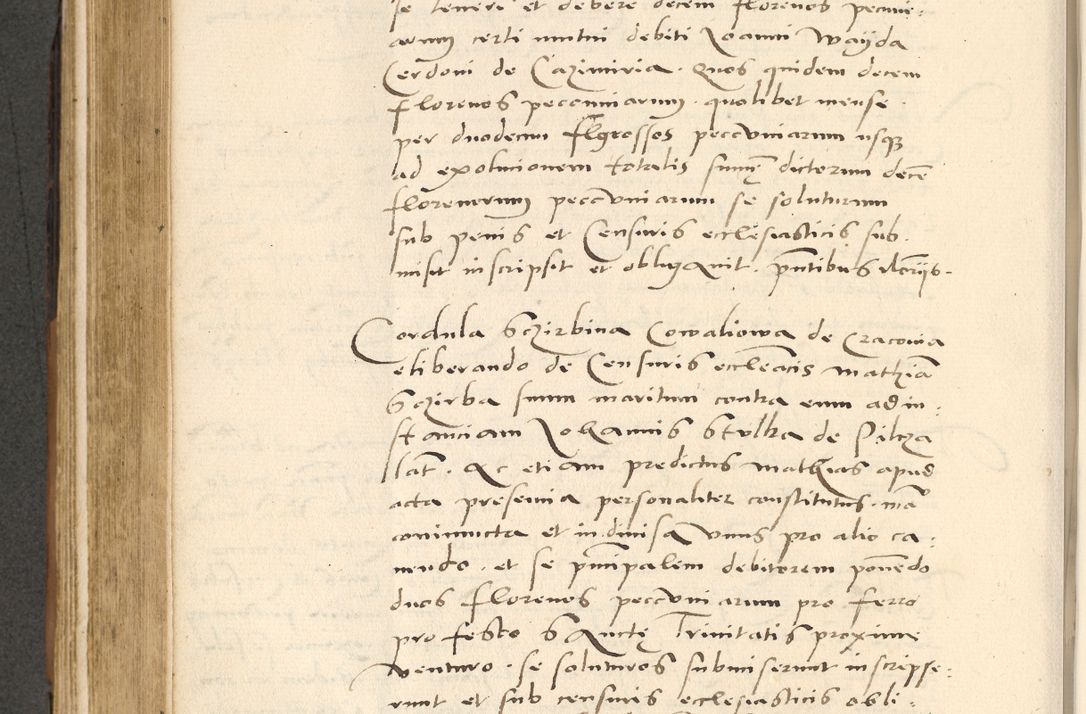 se teneri et debere decem florenos pecuni-
arum certi mutui debiti Joanni Wayda
Cerdoni de Cazimiria. Quos quidem decem
florenos pecuniarum. quolibet mense.
per duodecim grossos peccuniarum usq
ad exolucionem totalis summę dictorum decē
florenorum peccuniarum se soluturum
sub penis et Censuris ecclesiasticis sub.
misit inscripsit et obligavit. pntibus
Cordula Sczirbina Cowaliowa de Cracovia
eliberando de Censuris eccleacis mathiā
Sczirba suum maritum contra eum ad in-
stanciam Johannis Stulka de Pilcza
lat. Ac etiam predictus mathias apud
acta presentia personaliter constitutus. mā
coniuncta et indivisa unus pro alio ca-
vendo. et se pncipalem debitorem ponēdo
duos florenos peccuniarum pro ferro
pro festo Sanctę Trinitatis proxime
venturo. se soluturos submiserunt inscripse-
runt et sub censuris ecclesiasticis obli-